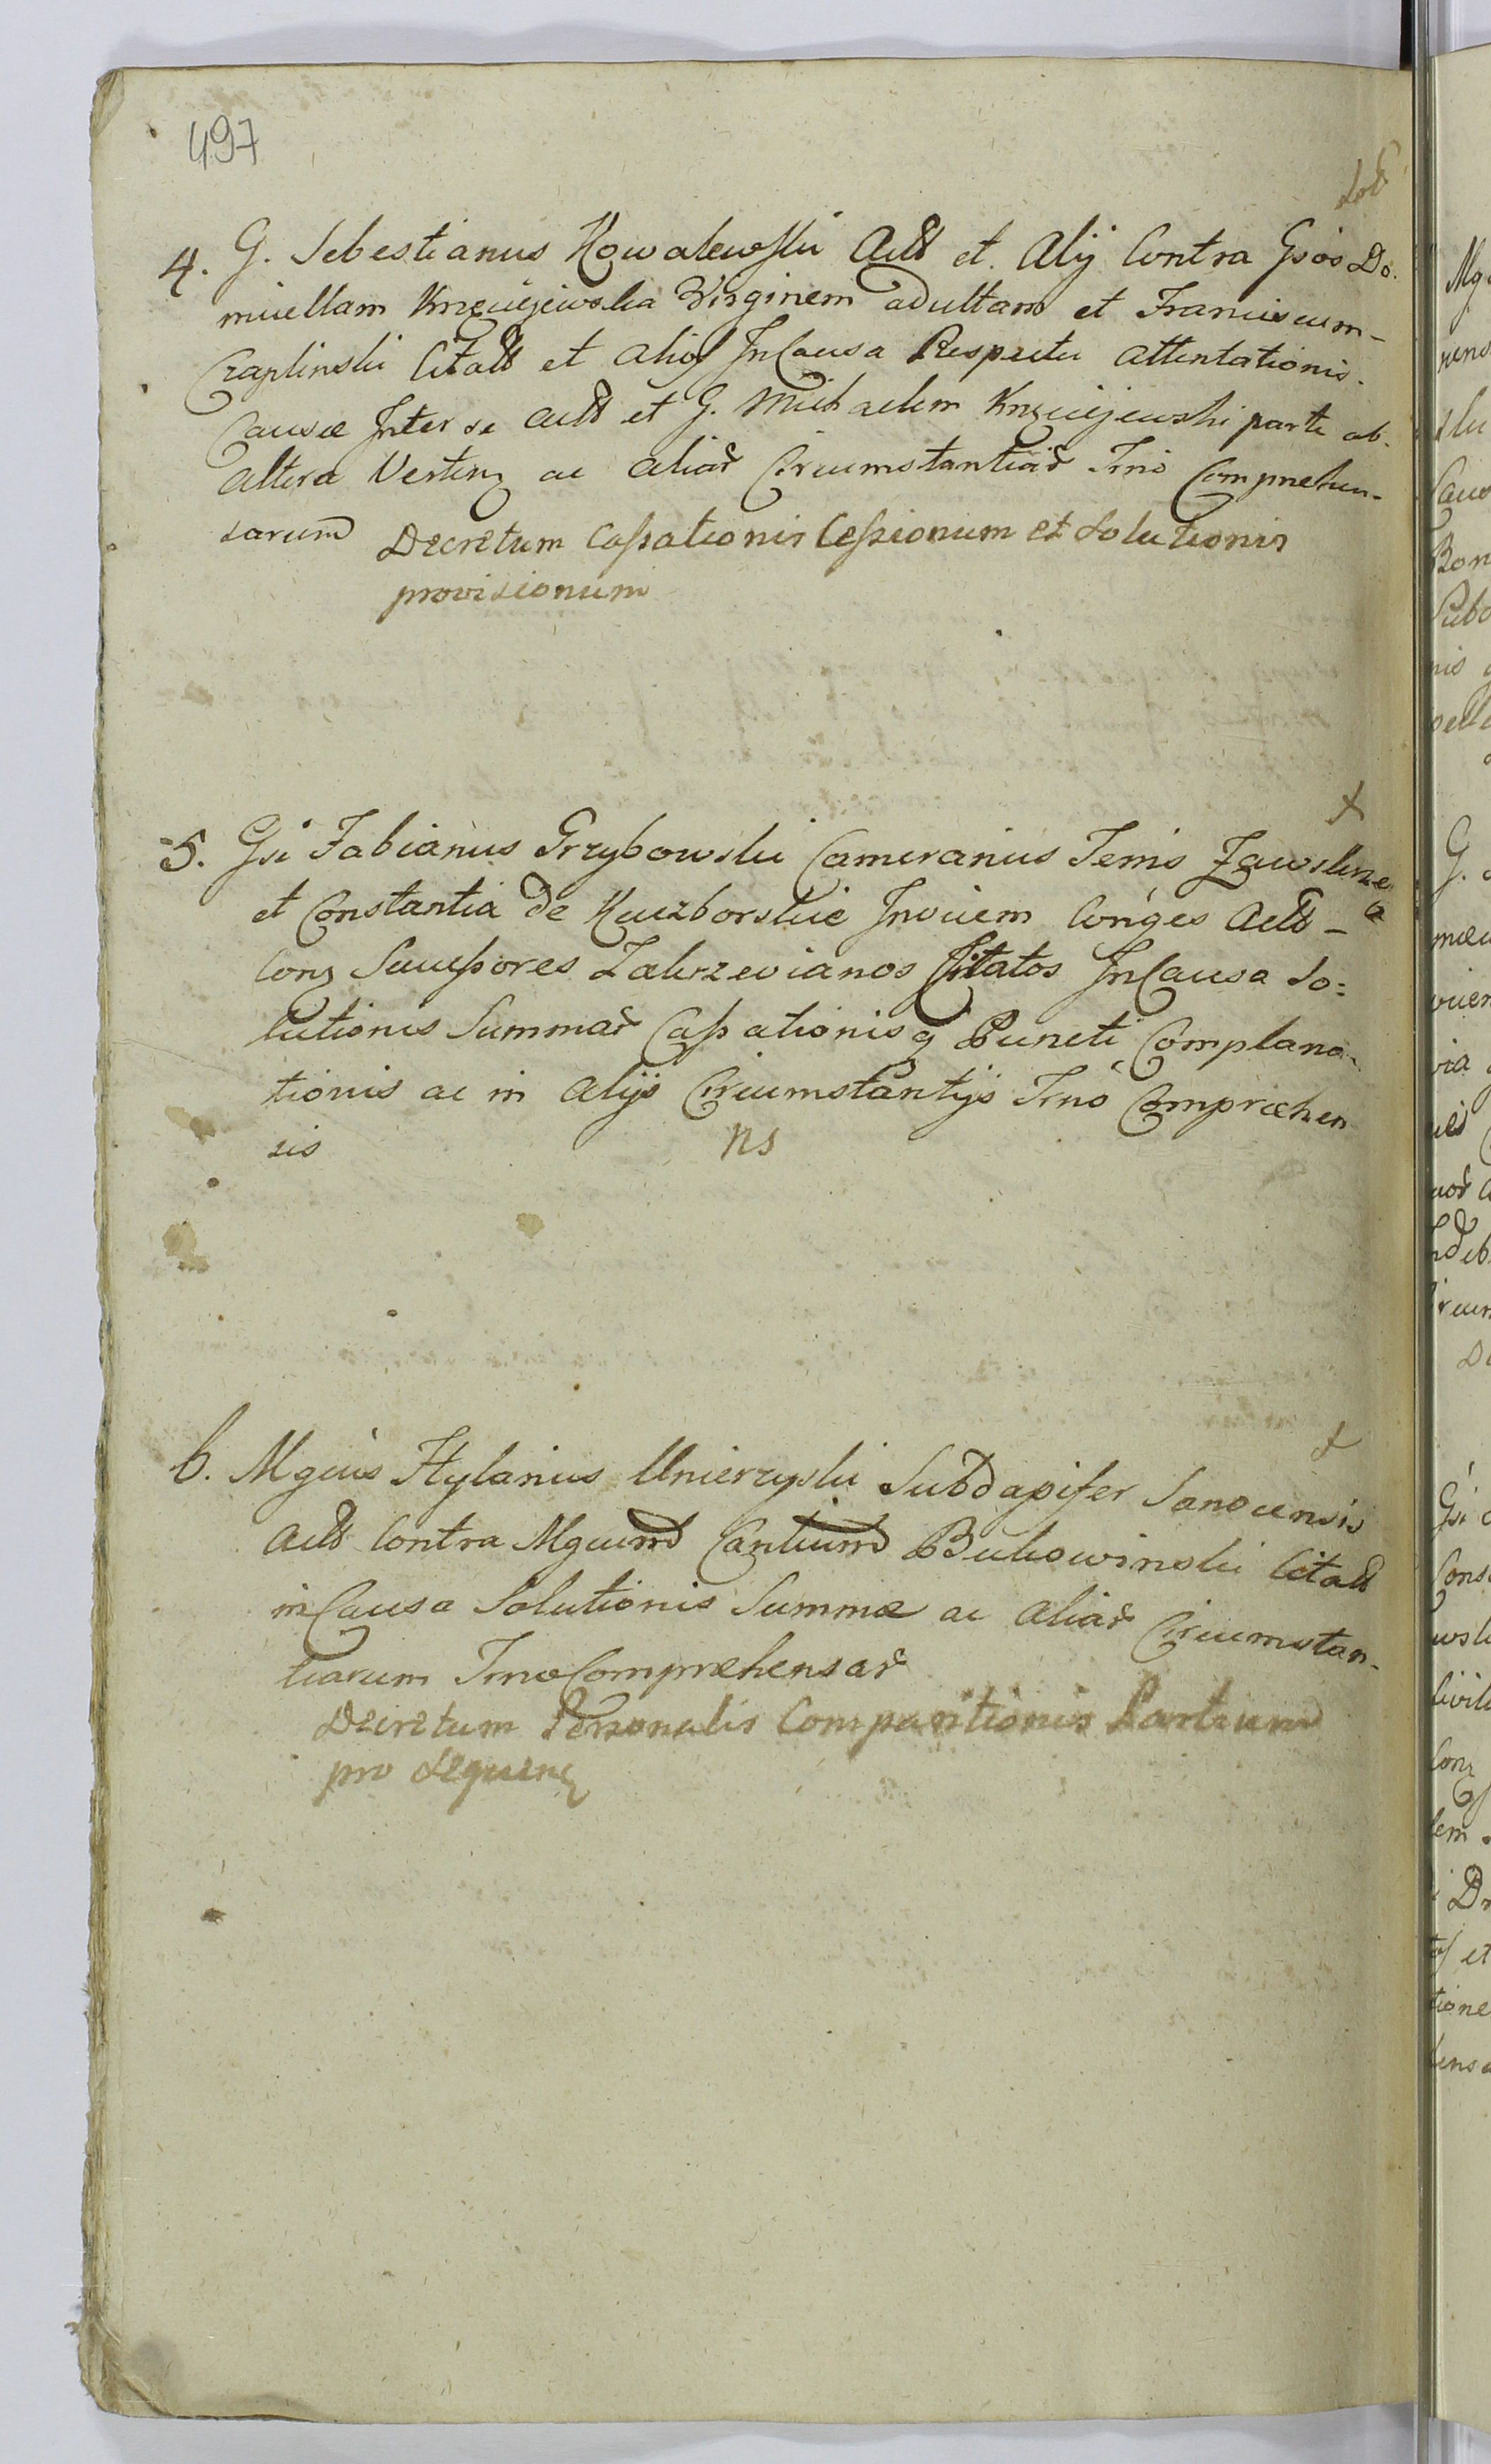 497
4. G. Sebestianus Kowalewski Actt et Alij Contra Gsos Do.
micellam Knzeciejewska Virginem adultam et Franciscum-
Czaplinski Citatt et alios In Causa Respectu attentationis.
Causæ Inter se Actt et G. Michaelem Knzeciejewski parte ab-
altera Verten ac aliar Circumstantiar Trno Comprehen-
sarum Decretum Cassationis Cessionum et Solutionis
provisionum
5. Gsi Fabianus Grzybowski Camerarius Terris Zawskrze
et Constantia de Kuczborskie Invicem Conges Actt -
Con Successores Zakrzevianos Citatos In Causa So=
lutionis Summar Cassationis q Puncti Complana-
tionis ac in alijs Circumstantijs Trno Compræhen
sis ns
6. Mgcus Hylarius Unierzyski Subdapifer Sanocensis
Actt Contra Mgcum Cantium Bukowinski Citatt
in Causa Solutionis Summæ ac aliar Circumstan-
tiarum Trno Compræhensar
Decretum Personalis Comparitionis Partium
pro sequen